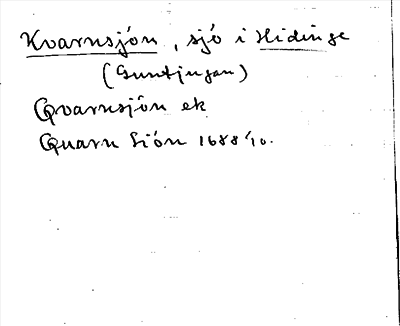 Kvarnsjön, sjö i Hidinge
(Guntjugan)
Qvarnsjön ek
Quarn Siön 1688 1/10.